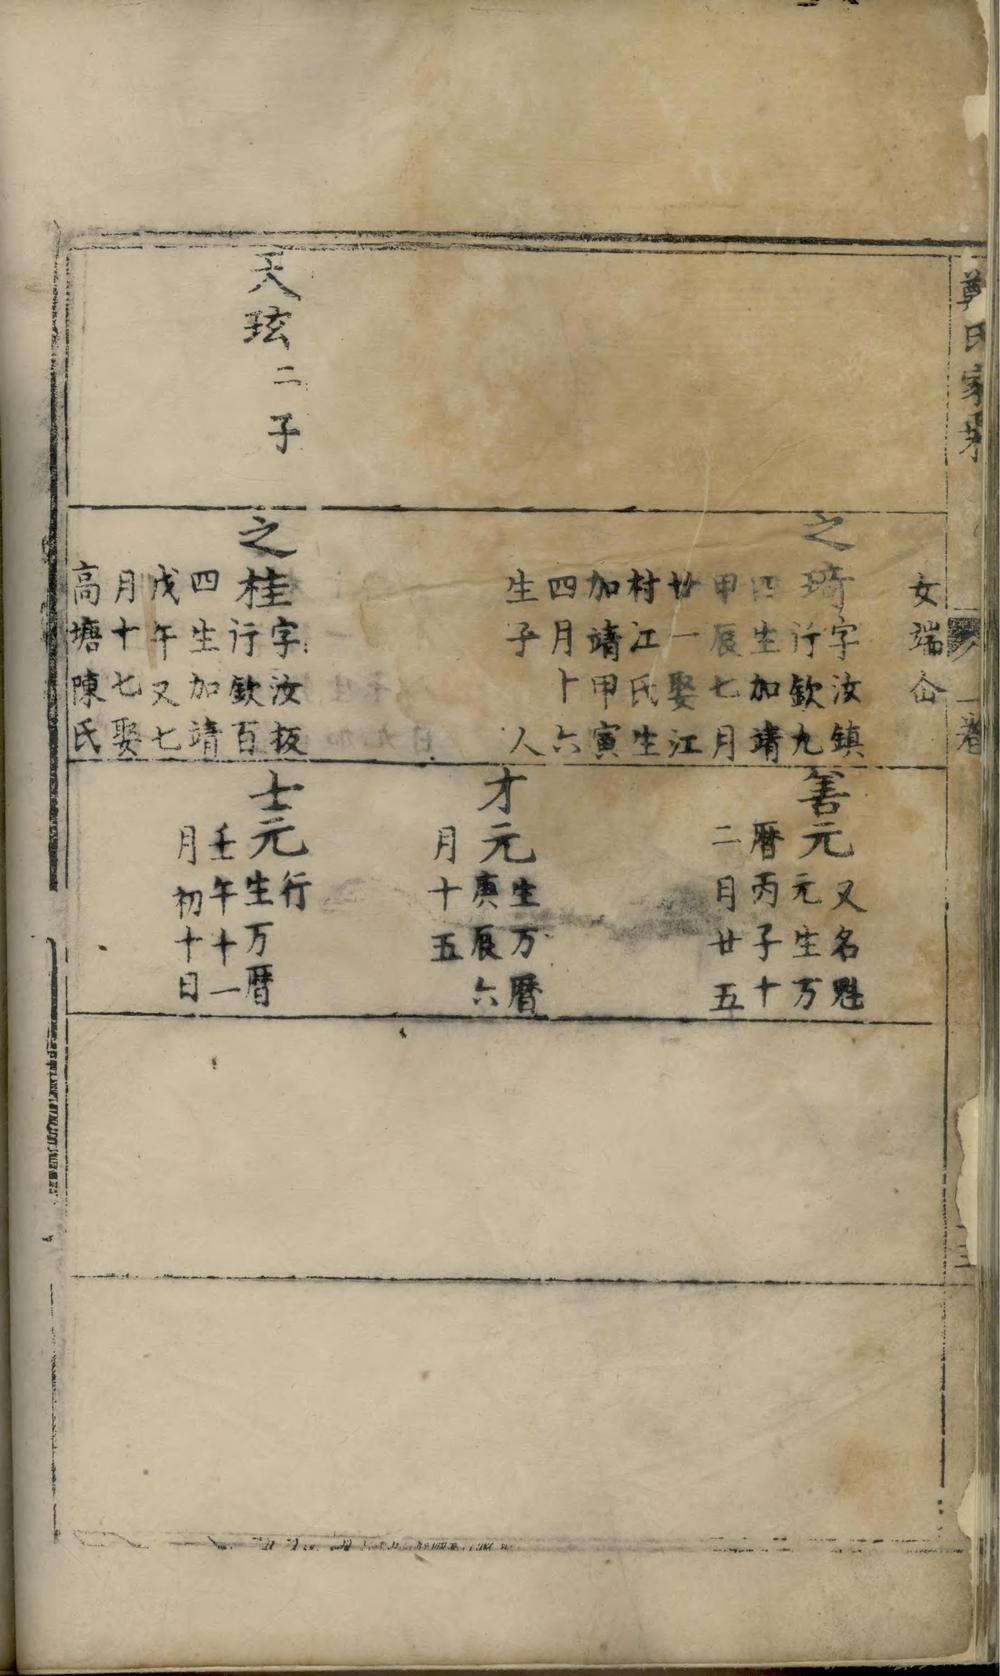 氏家
一卷
天玹二子
女端仚
之琦
字汝鎮
行欽九
四生加靖
甲辰七月
廿一娶江
村江氏生
加靖甲寅
四月十六
生子 人
之桂
字汝扳
行欽百
四生加靖
戊午又七
月十七娶
高塘陳氏
善元
又名魁
元生万
暦丙子十
二月廿五
才元
生万暦
庚辰六
月十五
士元
行
生万暦
壬午十一
月初十日